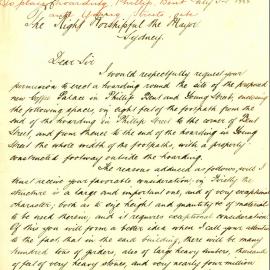 To place hoarding Phillip, Bent
and Young Streets
The Right Worshipful the Mayor
Sydney.
Dear Sir
I would respectfully request your
permission to erect a hoarding round the site of the proposed
new Coffee Palace in Phillip Bent and Young Streets, enclosing
the following spaces, viz eight feet of the footpath from the
end of the hoarding in Phillip Street to the corner of Bent
Street, and from thence to the end of the hoarding in Young
Street the whole width of the footpaths, with a properly
constructed footway outside the hoarding.
The reasons adduced as follows, will I
trust receive your favorable consideration viz Firstly the
structure is a large and important one, and of very exceptional
character, both as to size height and quantity of material
to be used therein, and it requires exceptional consideration
Of this you will form a better idea when I call your attention
to the fact that in the said building, there will be many
hundred tons of girders, also of large heavy timber, thousands
of feet of very heavy stones, and very nearly four million